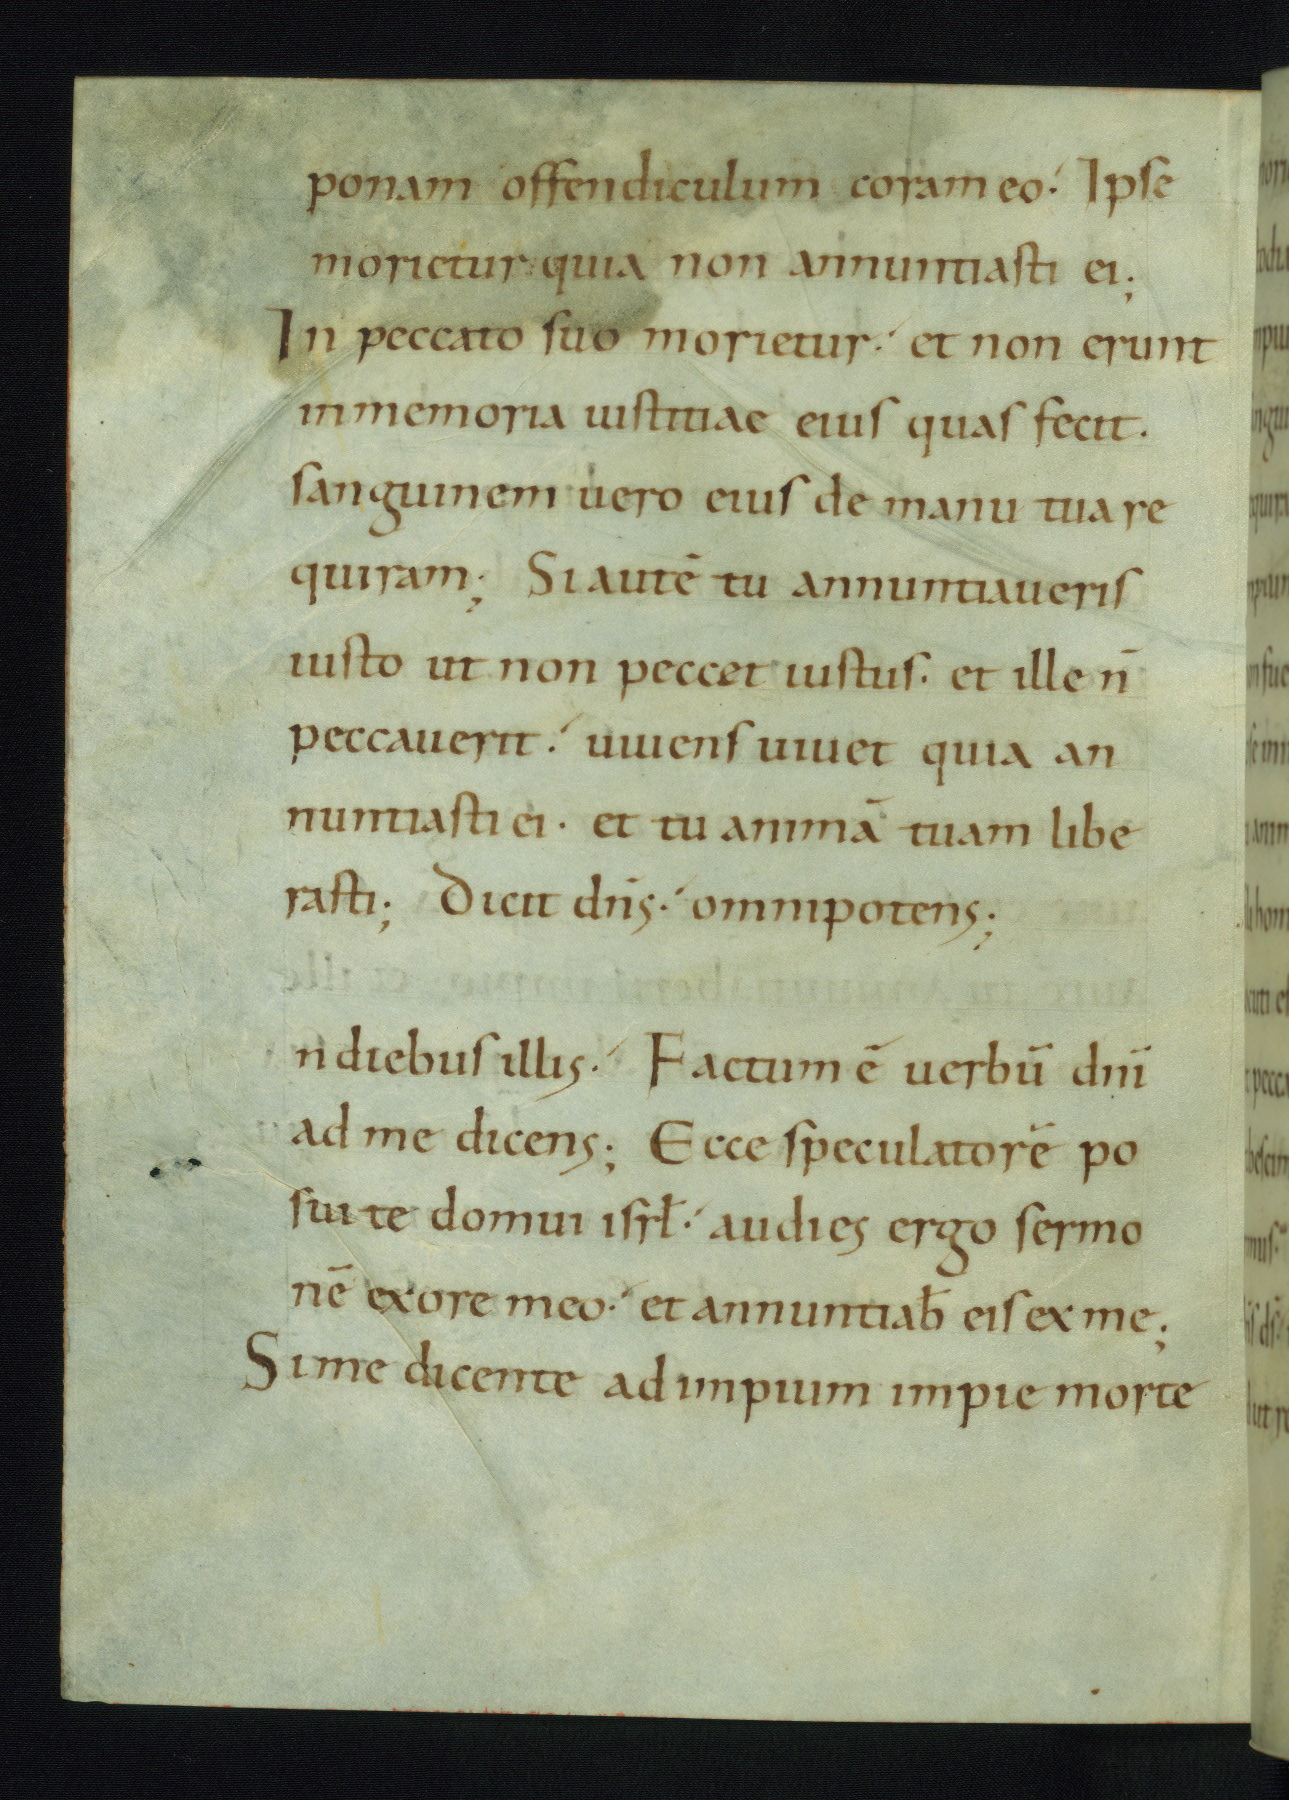 ponam offendiculum coram eo. Ipse
morietur quia non annuntiasti ei;
In peccato suo morietur. et non erunt
in memoria iustitiae eius quas fecit.
sanguinem uero eius de manu tua re
quiram; Si autē tu annuntiaueris
iusto ut non peccet iustus. et ille n̄
peccauerit. uiuens uiuet quia an
nuntiasti ei. et tu animā tuam libe
rasti; Dicit dn̄s. omnipotens;
n diebus illis. Factum ē uerbū dn̄i
ad me dicens; Ecce speculatorē po
sui te domui isrł. audies ergo sermo
nē ex ore meo. et annuntiab̄ eis ex me;
Si me dicente ad impium impie morte